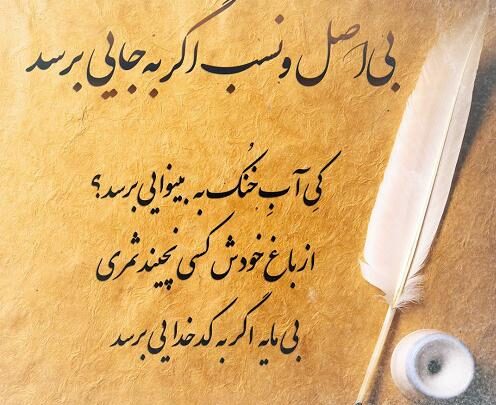 بی اصل و نسب اگر به جایی برسد
کیِ آبِ خُنک به بینوایی برسد؟
از باغ خودش کسی نچیند ثمری
بی مایه اگر به کدخدایی برسد